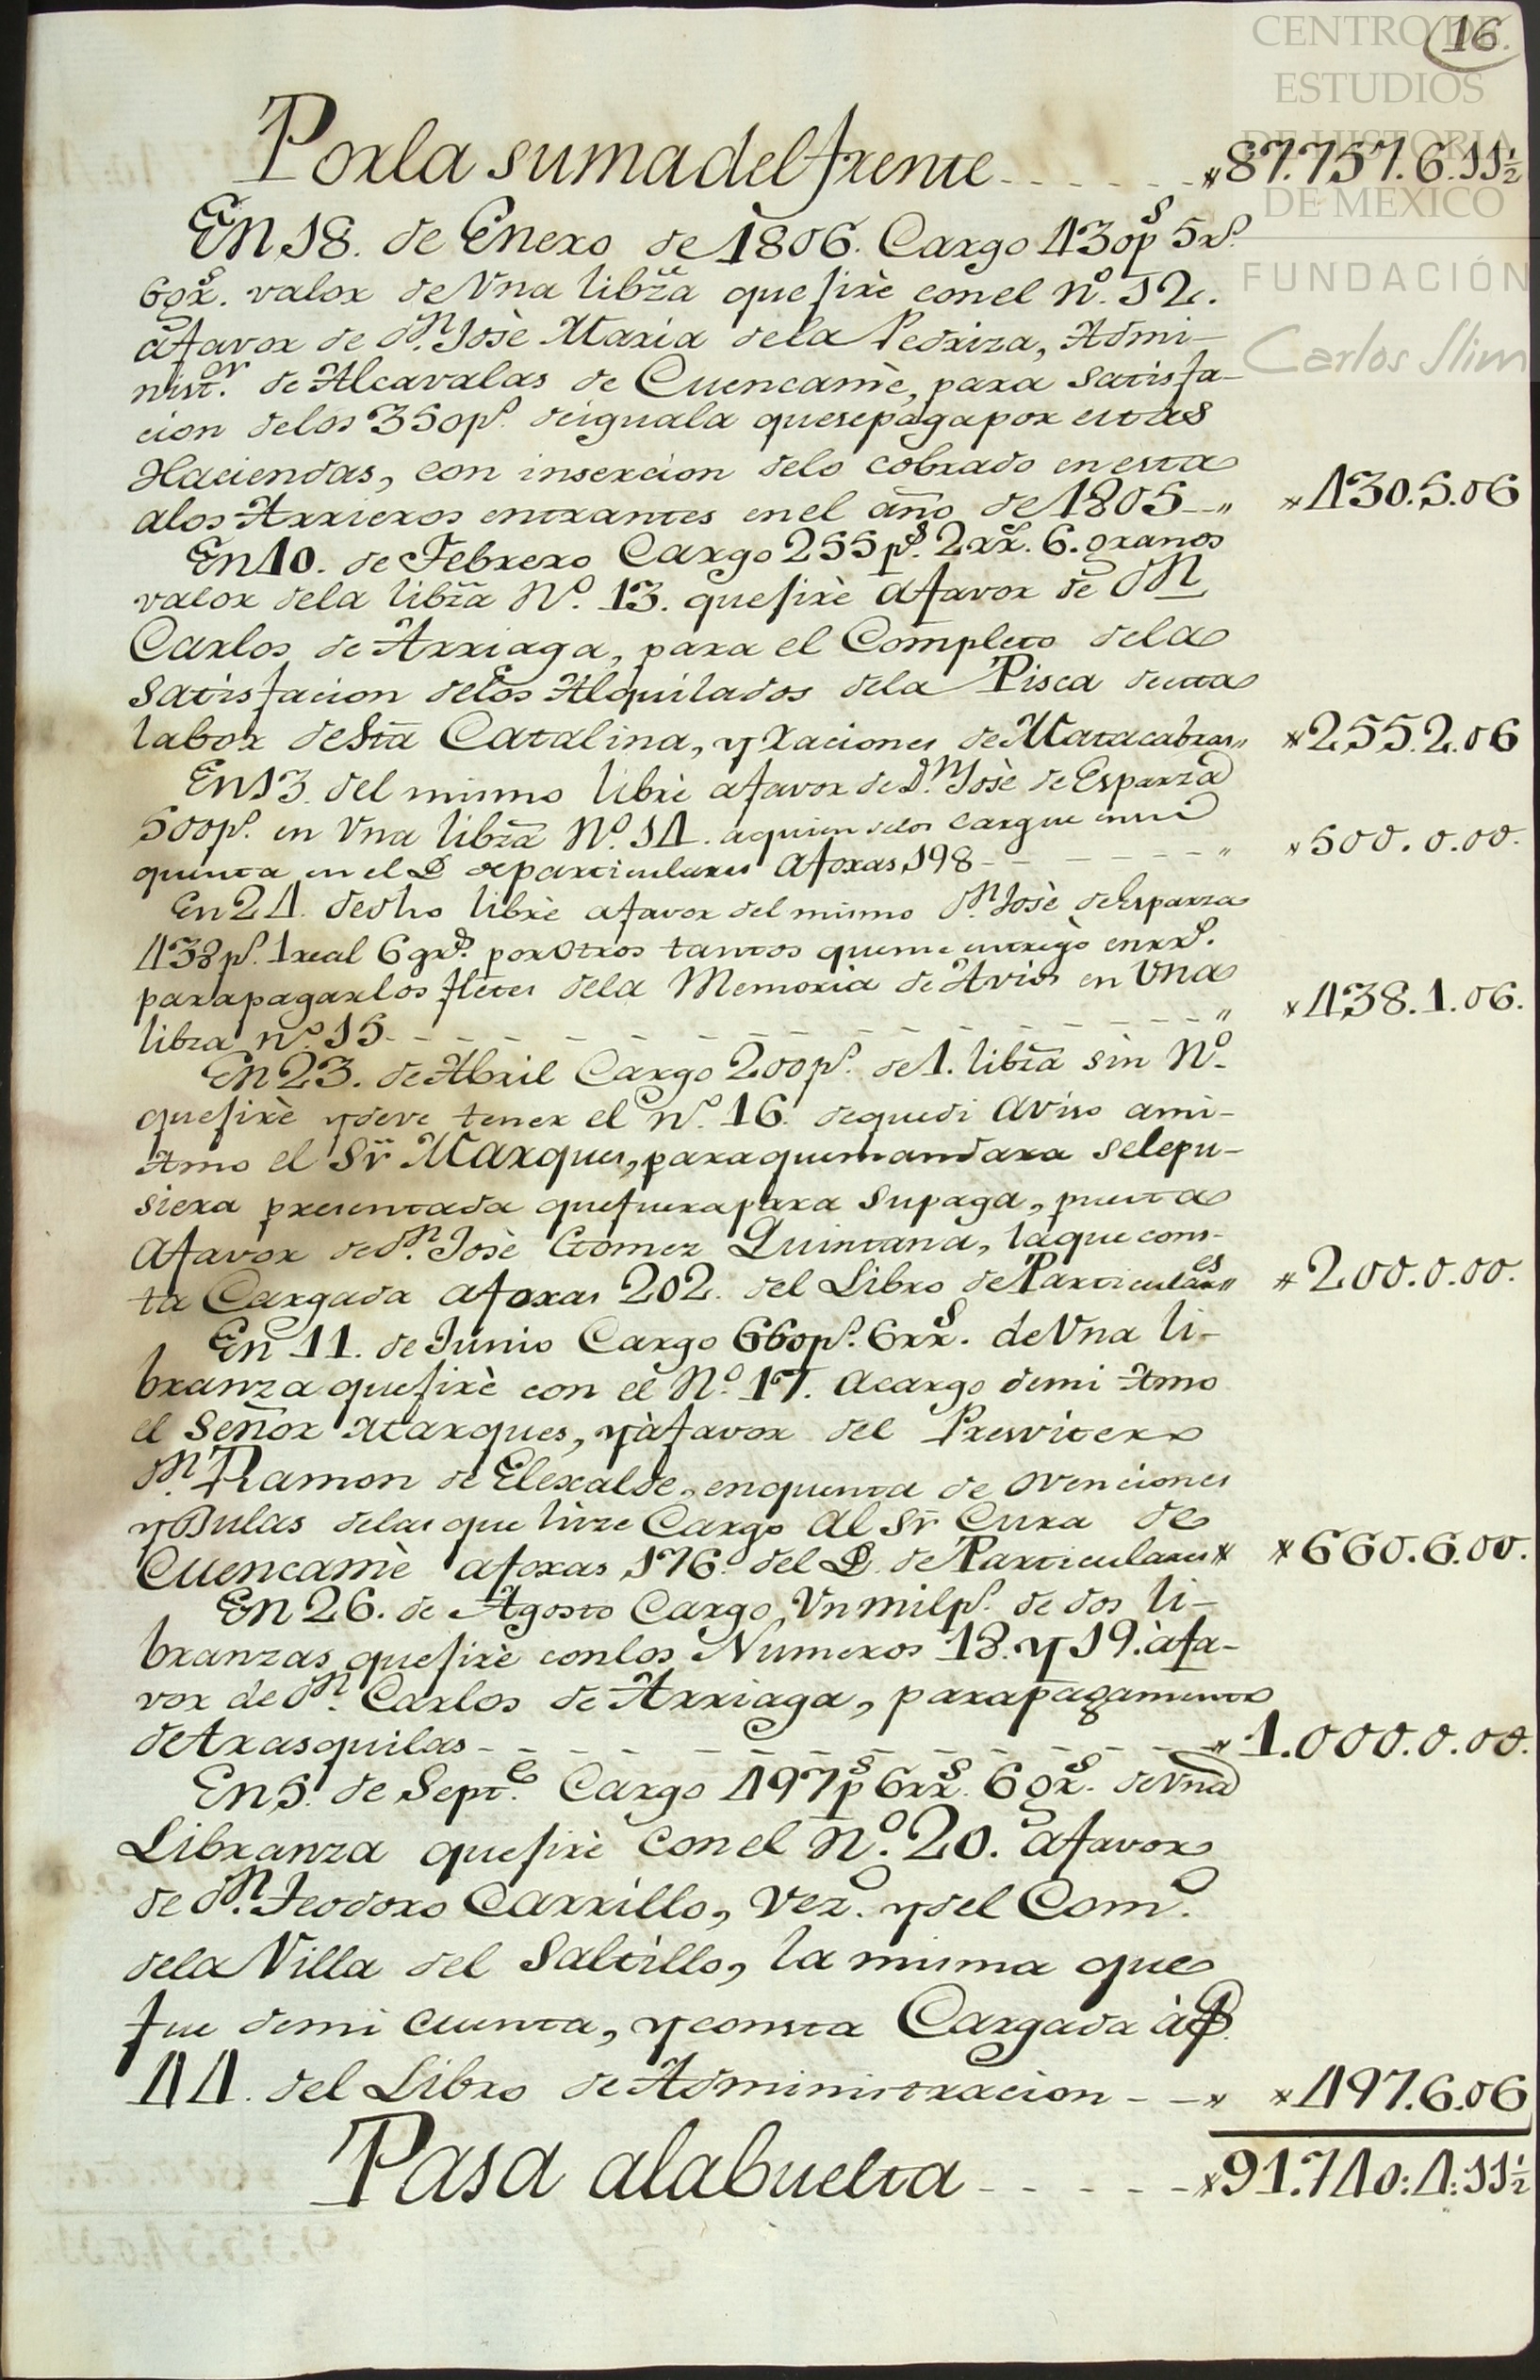 16.
CENTRO DE
ESTUDIOS
DE HISTORIA
DE MEXICO
FUNDACIÓN
Carlos Slim
Por la suma del frente - - - - - - 87.757.6.11½
En 18. de Enero de 1806. Cargo 430 p.s 5 r.s
6 gr.s valor de Vna libr̃a que firè con el N.o 12.
afavor de d.n Josè Maria dela Pedriza, Admi-
nist.or de Alcavalas de Cuencamè, para satisfa-
cion delos 350 p.s de iguala que se paga por estas
Haciendas, con insercion delo cobrado en esta
alos Arrieros entrantes en el año de 1805 - - " 430.5.06
En 10. de Febrero Cargo 255 p.s 2 rr.s 6. granos
valor dela libr̃a N.o 13. que firè afavor de d.n
Carlos de Arriaga, para el Completo dela
satisfacion delos Alquilados dela Pisca de esta
labor de Sta Catalina, y raciones de Matacabras " 255.2.06
En 13. del mismo librè afavor de D.n Josè de Esparza
500 p.s en Vna libr̃a N.o 14. a quien selos cargue en su
quenta en el L. de particulares afoxas 198 - - - - - " 500.0.00.
En 24. de dho librè afavor del mismo d.n Josè de Esparza
438 p.s 1 real 6 gr.s por otros tantos que me entregò en rr.s
para pagar los fletes dela Memoria de Avios en Vna
libra n.o 15 - - - - - - - - - - - " 438.1.06.
En 23. de Abril Cargo 200 p.s de 1. libr̃a sin N.o
que firè y deve tener el n.o 16. de que di aviso a mi
Amo el Sr̃ Marques, para que mandara se le pu-
siera presentada que fuera para su paga, puesta
afavor de d.n Josè Gomez Quintana, la que cons-
ta Cargada afoxas 202. del Libro de Particulares " 200.0.00.
En 11. de Junio Cargo 660 p.s 6 rr.s de Vna li-
branza que firè con el N.o 17. acargo de mi Amo
el Señor Marques, y àfavor del Presvitero
d.n Ramon de Elexalde, en quenta de ovenciones
y Bulas delas que hize Cargo al Sr̃ Cura de
Cuencamè afoxas 176. del L. de Particulares 660.6.00.
En 26. de Agosto Cargo Vn mil p.s de dos li-
branzas que firè con los Numeros 18. y 19. àfa-
vor de d.n Carlos de Arriaga, para pagamento
de trasquilas - - - - - - - - - - 1.000.0.00.
En 5. de Sept.e Cargo 497 p.s 6 rr.s 6 gr.s de Vna
Libranza que firè con el N.o 20. afavor
de d.n Teodoro Carrillo, Vez.o y del Com.o
dela Villa del Saltillo, la misma que
fue de mi cuenta, y consta Cargada à f.
44. del Libro de Administracion - - 497.6.06
Pasa ala buelta - - - - - 91.740:4:11½